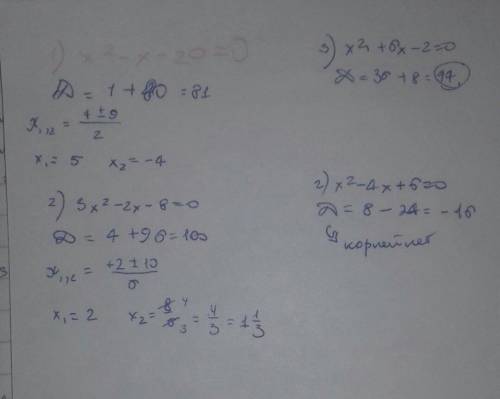 1) x²-x-20=0
D = 1 + 80 = 81
x₁,₂ = (1±9)/2
x₁ = 5 x₂ = -4
2) 3x²-2x-8=0
D = 4 + 96 = 100
x₁,₂ = (+2±10)/6
x₁ = 2 x₂ = 8/6 = 4/3 = 1 1/3
3) x² + 6x - 2 = 0
D = 36 + 8 = 44
2) x²-4x+6=0
D = 8 - 24 = -16
↳ корней нет